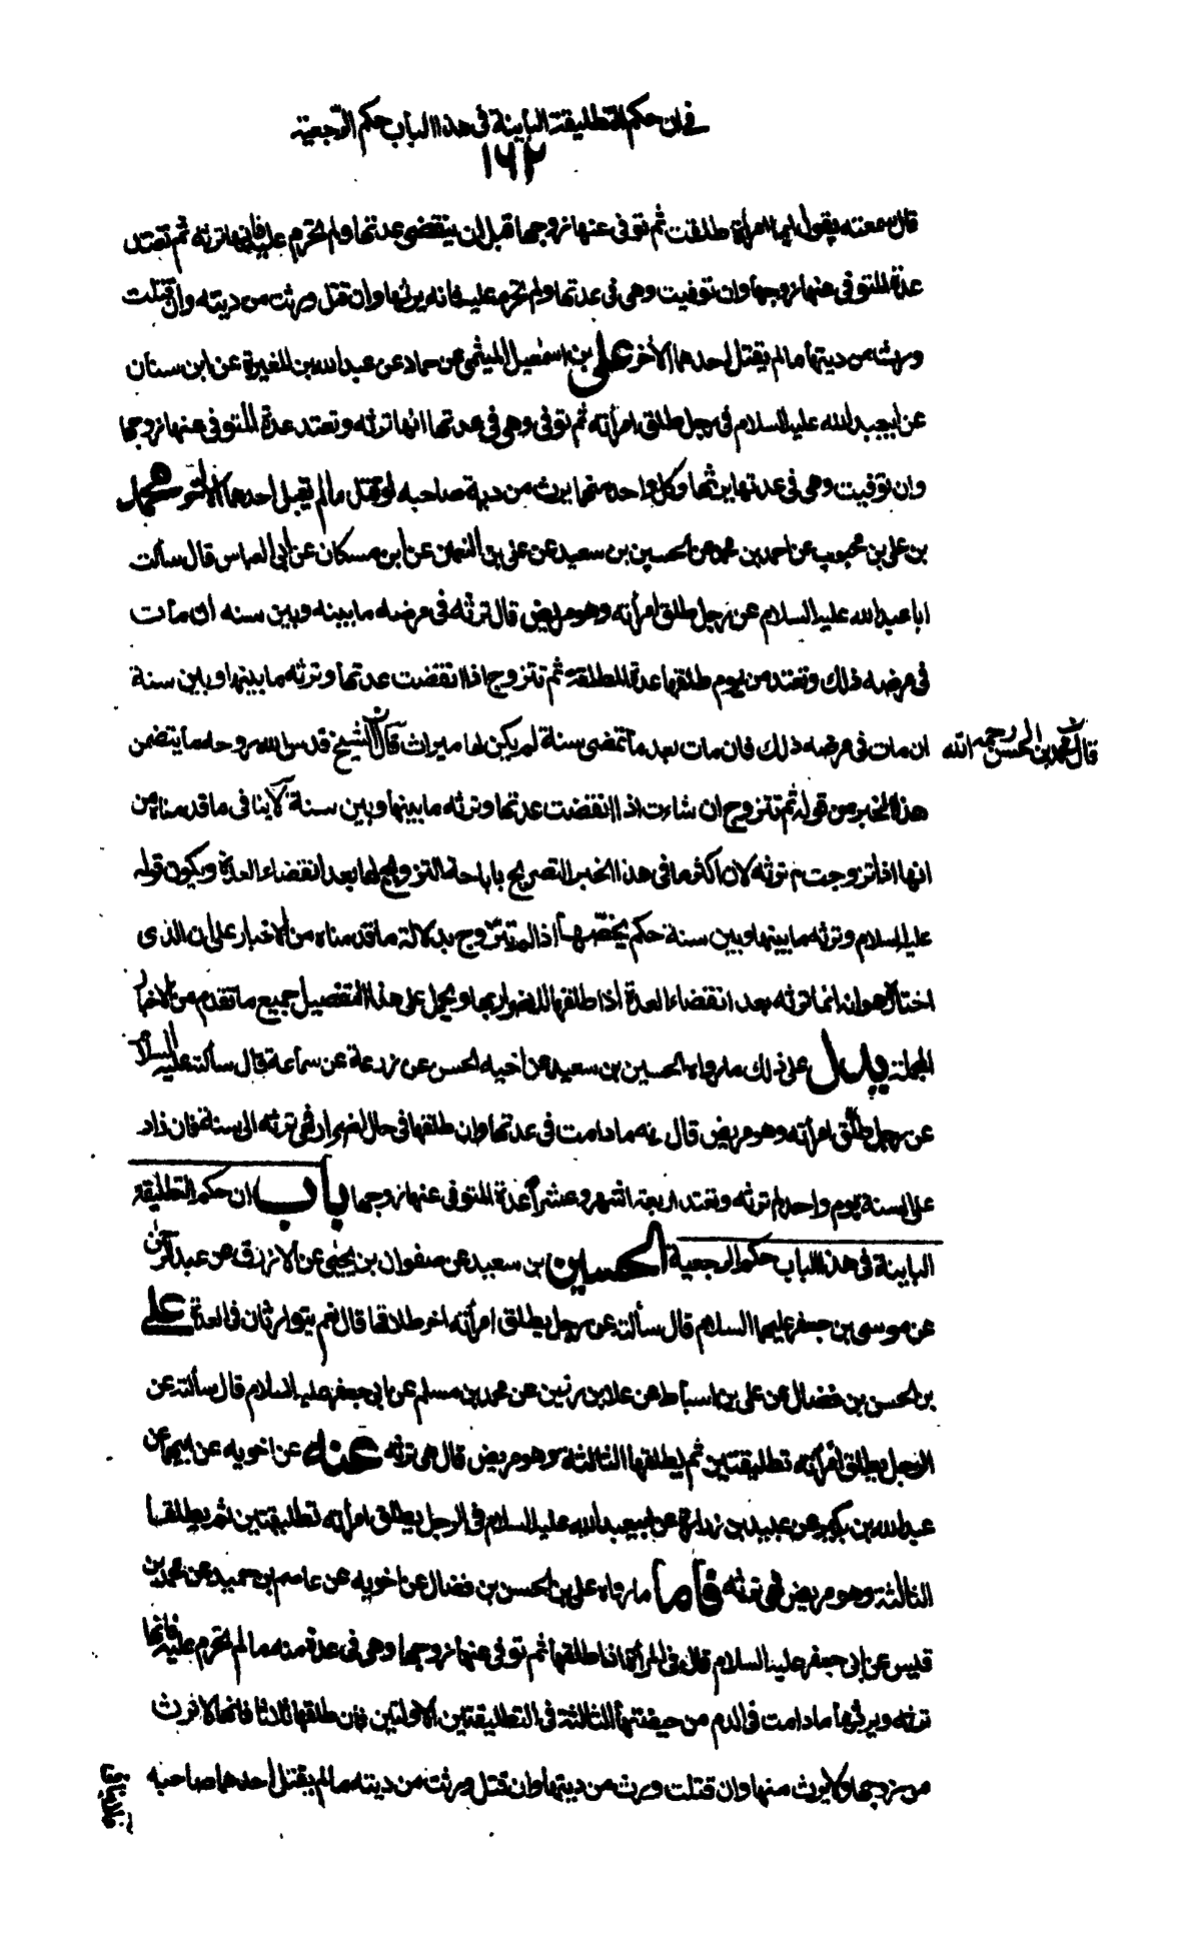 في ان حكم التطليقة البائنة في هذا الباب حكم الرجعية
١٦٢
قال سمعته يقول ايما امرأة طلقت ثم توفى عنها زوجها قبل ان ينقضي عدتها ولم تحرم عليه فانها ترثه ثم تعتد
عدة المتوفى عنها زوجها وان توفيت وهي في عدتها ولم تحرم عليه فانه يرثها وان قتل ورثت من ديته وان قتلت
ورث من ديتها ما لم يقتل احدهما الآخر علي بن اسمعيل الميثمي عن حماد عن عبد الله بن المغيرة عن ابن سنان
عن ابيعبد الله عليه السلام في رجل طلق امرأته ثم توفى وهي في عدتها انها ترثه وتعتد عدة المتوفى عنها زوجها
وان توفيت وهي في عدتها يرثها وكل واحد منهما يرث من دية صاحبه لو قتل ما لم يقتل احدهما الاخر محمد
بن علي بن محبوب عن احمد بن محمد عن الحسين بن سعيد عن علي بن النعمن عن ابن مسكان عن ابي العباس قال سألت
ابا عبد الله عليه السلام عن رجل طلق امرأته وهو مريض قال ترثه في مرضه ما بينه وبين سنه ان مات
في مرضه ذلك وتعتد من يوم طلقها عدة المطلقة ثم تتزوج اذا انقضت عدتها وترثه ما بينها وبين سنة
ان مات في مرضه ذلك فان مات بعد ما تمضي سنة لم يكن لها ميراث قال الشيخ قدس الله روحه ما يتضمن
قال محمد بن الحسن رحمه الله
هذا الخبر من قوله ثم تتزوج ان شاءت اذا انقضت عدتها وترثه ما بينها وبين سنة لا ينافى ما قدمناه من
انها اذا تزوجت لم ترثه لان اكثر ما في هذا الخبر التصريح باباحة التزويج لها بعد انقضاء العدة ويكون قوله
عليه السلام وترثه ما بينها وبين سنة حكم يخصها اذا لم تتزوج بدلالة ما قدمناه من الاخبار على ان الذي
اختاره هو انه انما ترثه بعد انقضاء العدة اذا طلقها للاضرار بها ويحمل على هذا التفصيل جميع ما تقدم من الاخبار
المجملة يدل على ذلك ما رواه الحسين بن سعيد عن اخيه الحسن عن زرعة عن سماعة قال سألته عليه السلام
عن رجل طلق امرأته وهو مريض قال ترثه ما دامت في عدتها وان طلقها في حال اضرار فهي ترثه الى سنة فان زاد
على السنة يوم واحد لم ترثه وتعتد اربعة اشهر وعشرا عدة المتوفى عنها زوجها باب ان حكم التطليقة
البائنة في هذا الباب حكم الرجعية الحسين بن سعيد عن صفوان بن يحيى عن الازرق عن عبد الرحمن
عن موسى بن جعفر عليهما السلام قال سألته عن رجل يطلق امرأته اخر طلاقها قال نعم يتوارثان في العدة علي
بن الحسن بن فضال عن علي بن اسباط عن علا بن رزين عن محمد بن مسلم عن ابي جعفر عليه السلام قال سألته عن
الرجل يطلق امرأته تطليقتين ثم يطلقها الثالثة وهو مريض قال هي ترثه عنه عن اخويه عن ابيهما عن
عبد الله بن بكير عن عبيد بن زرارة عن ابيعبد الله عليه السلام في الرجل يطلق امرأته تطليقتين ثم يطلقها
الثالثة وهو مريض فهي ترثه فاما ما رواه علي بن الحسن بن فضال عن اخويه عن عاصم بن حميد عن محمد بن
قيس عن ابي جعفر عليه السلام قال في المرأة اذا طلقها ثم توفى عنها زوجها وهي في عدة منه ما لم تحرم عليه فانها
ترثه ويرثها ما دامت في الدم من حيضتها الثالثة في التطليقتين الاولتين فان طلقها ثلاثا فانها لا ترث
من زوجها ولا يرث منها وان قتلت ورث من ديتها وان قتل ورثت من ديته ما لم يقتل احدهما صاحبه